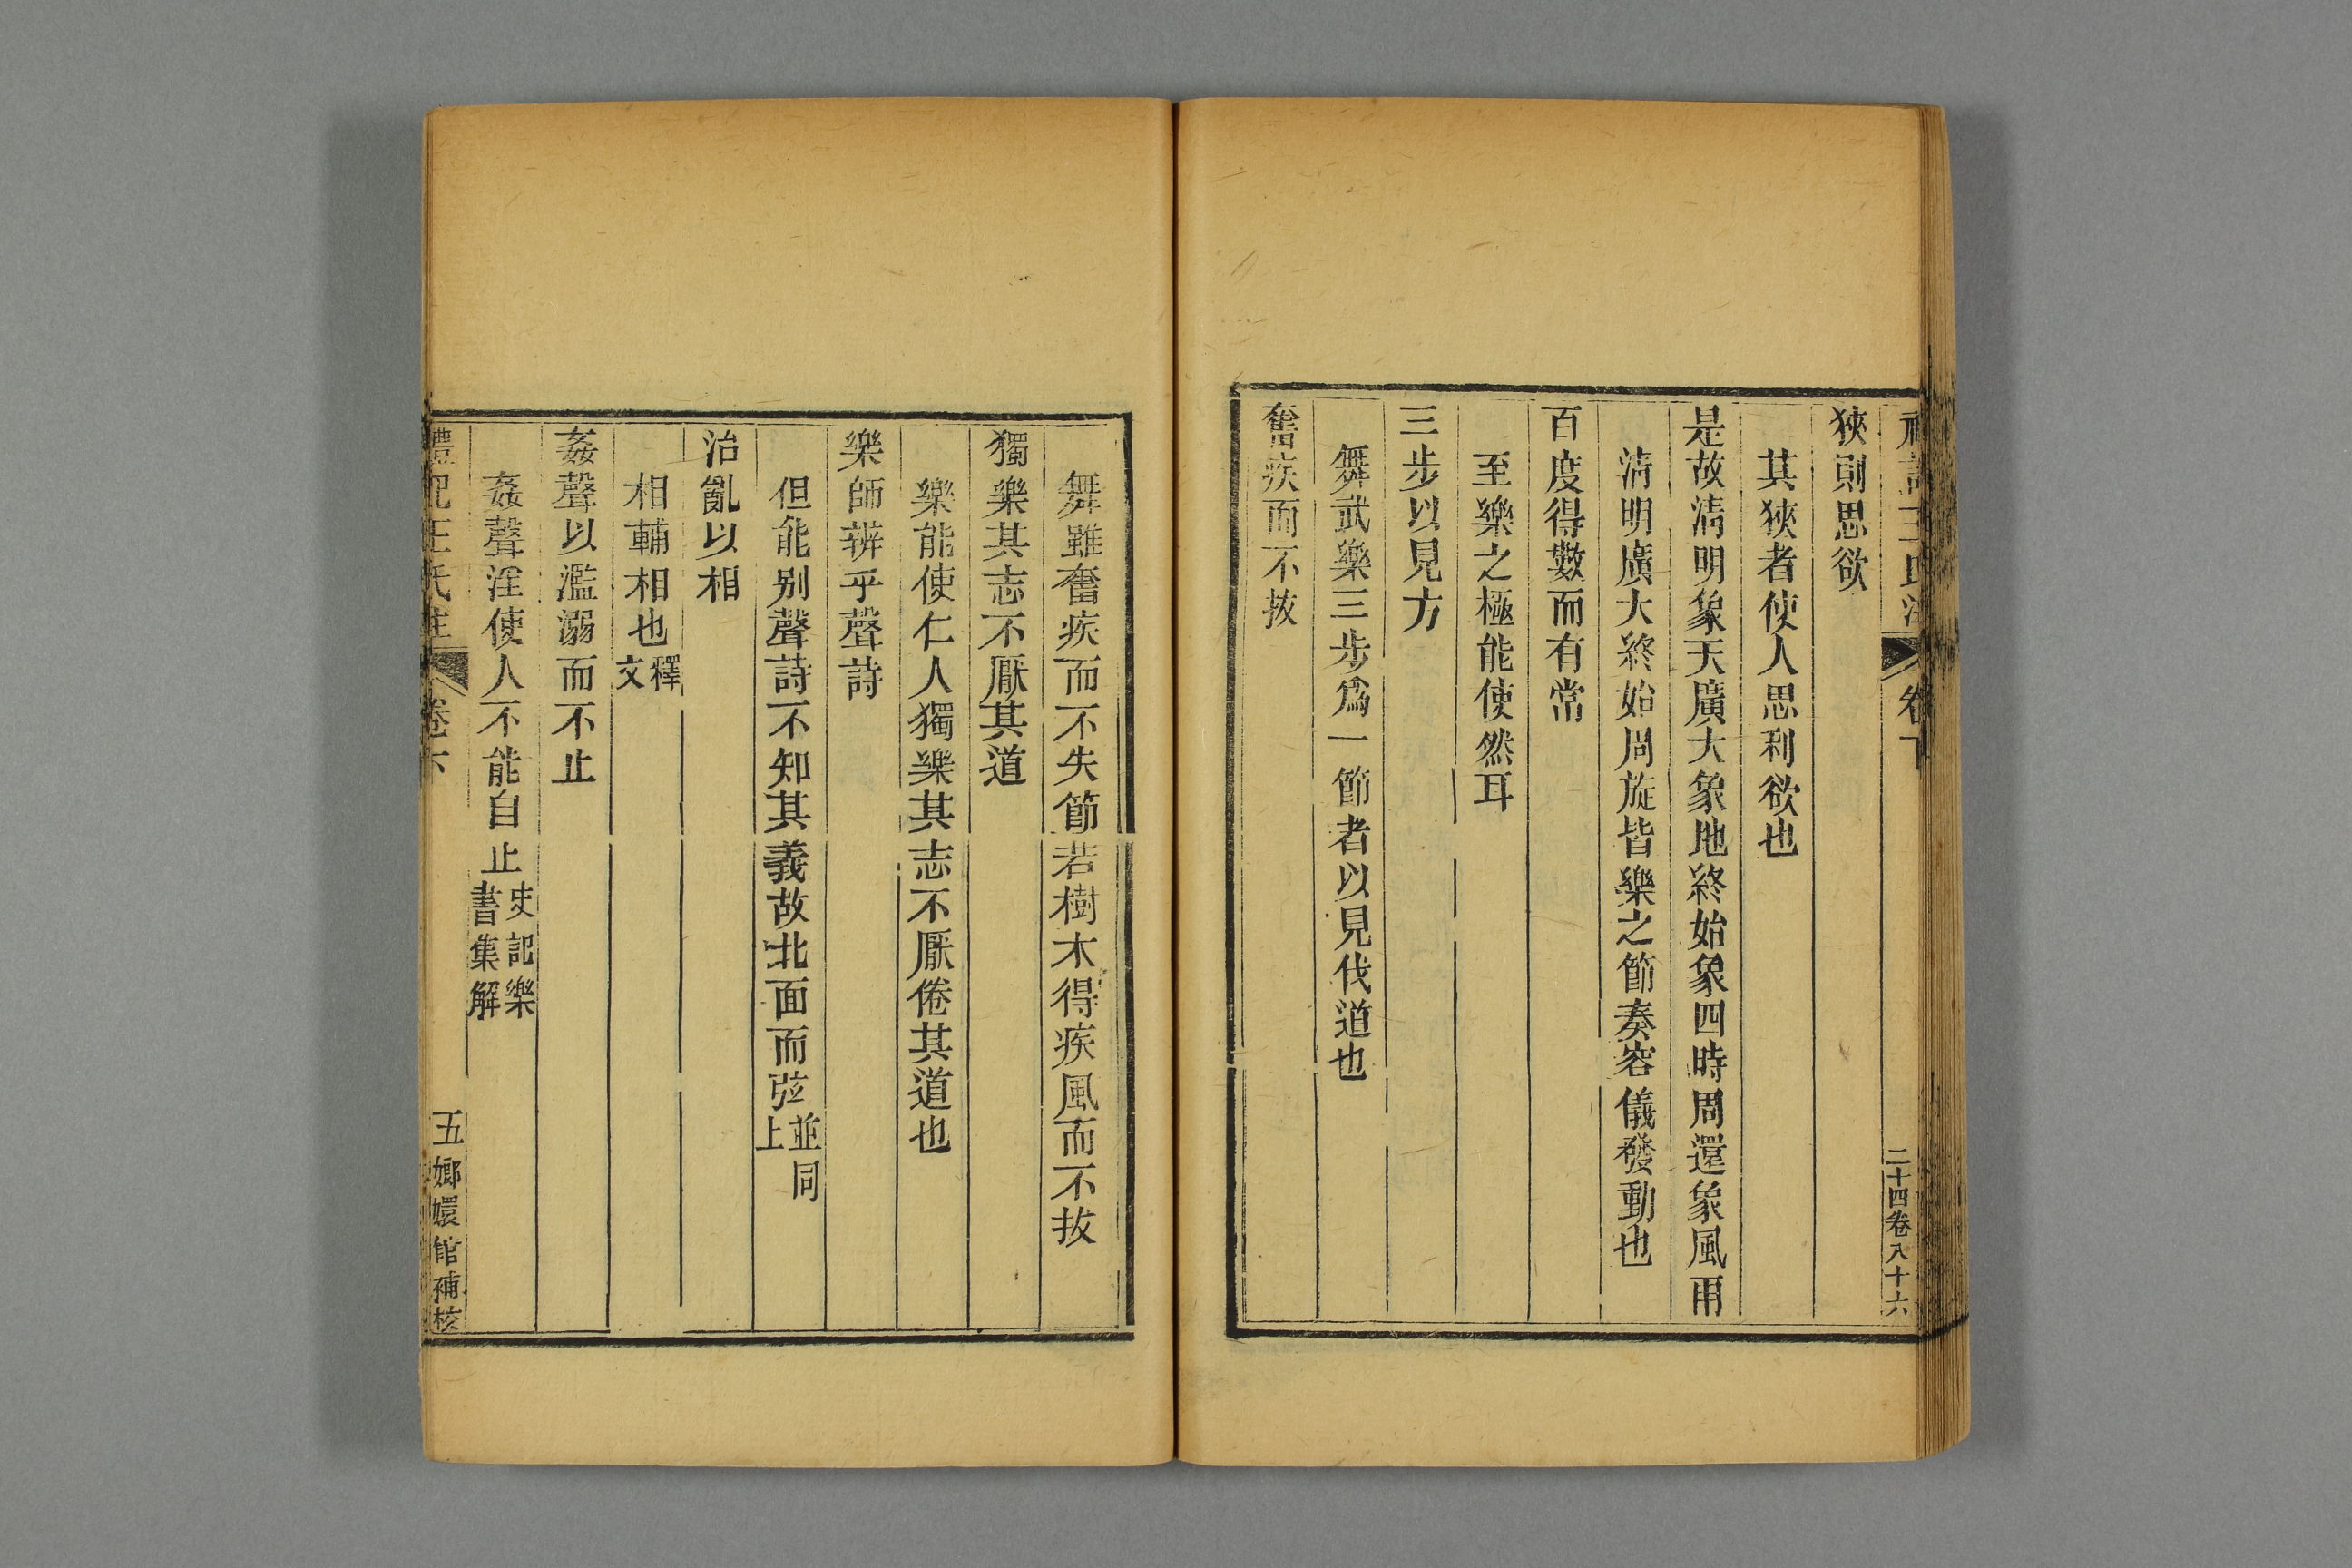 禮記王氏注 卷下 二十四卷八十六
狹則思欲
其狹者使人思利欲也
是故淸明象天廣大象地終始象四時周還象風雨
淸明廣大終始周旋皆樂之節奏容儀發動也
百度得數而有常
至樂之極能使然耳
三步以見方
舞武樂三步爲一節者以見伐道也
奮疾而不拔
舞雖奮疾而不失節若樹木得疾風而不拔
獨樂其志不厭其道
樂能使仁人獨樂其志不厭倦其道也
樂師辨乎聲詩
但能别聲詩不知其義故北面而弦並同上
治亂以相
相輔相也釋文
姦聲以濫溺而不止
姦聲淫使人不能自止史記樂書集解
禮記王氏注 卷下 五 嫏嬛館補校